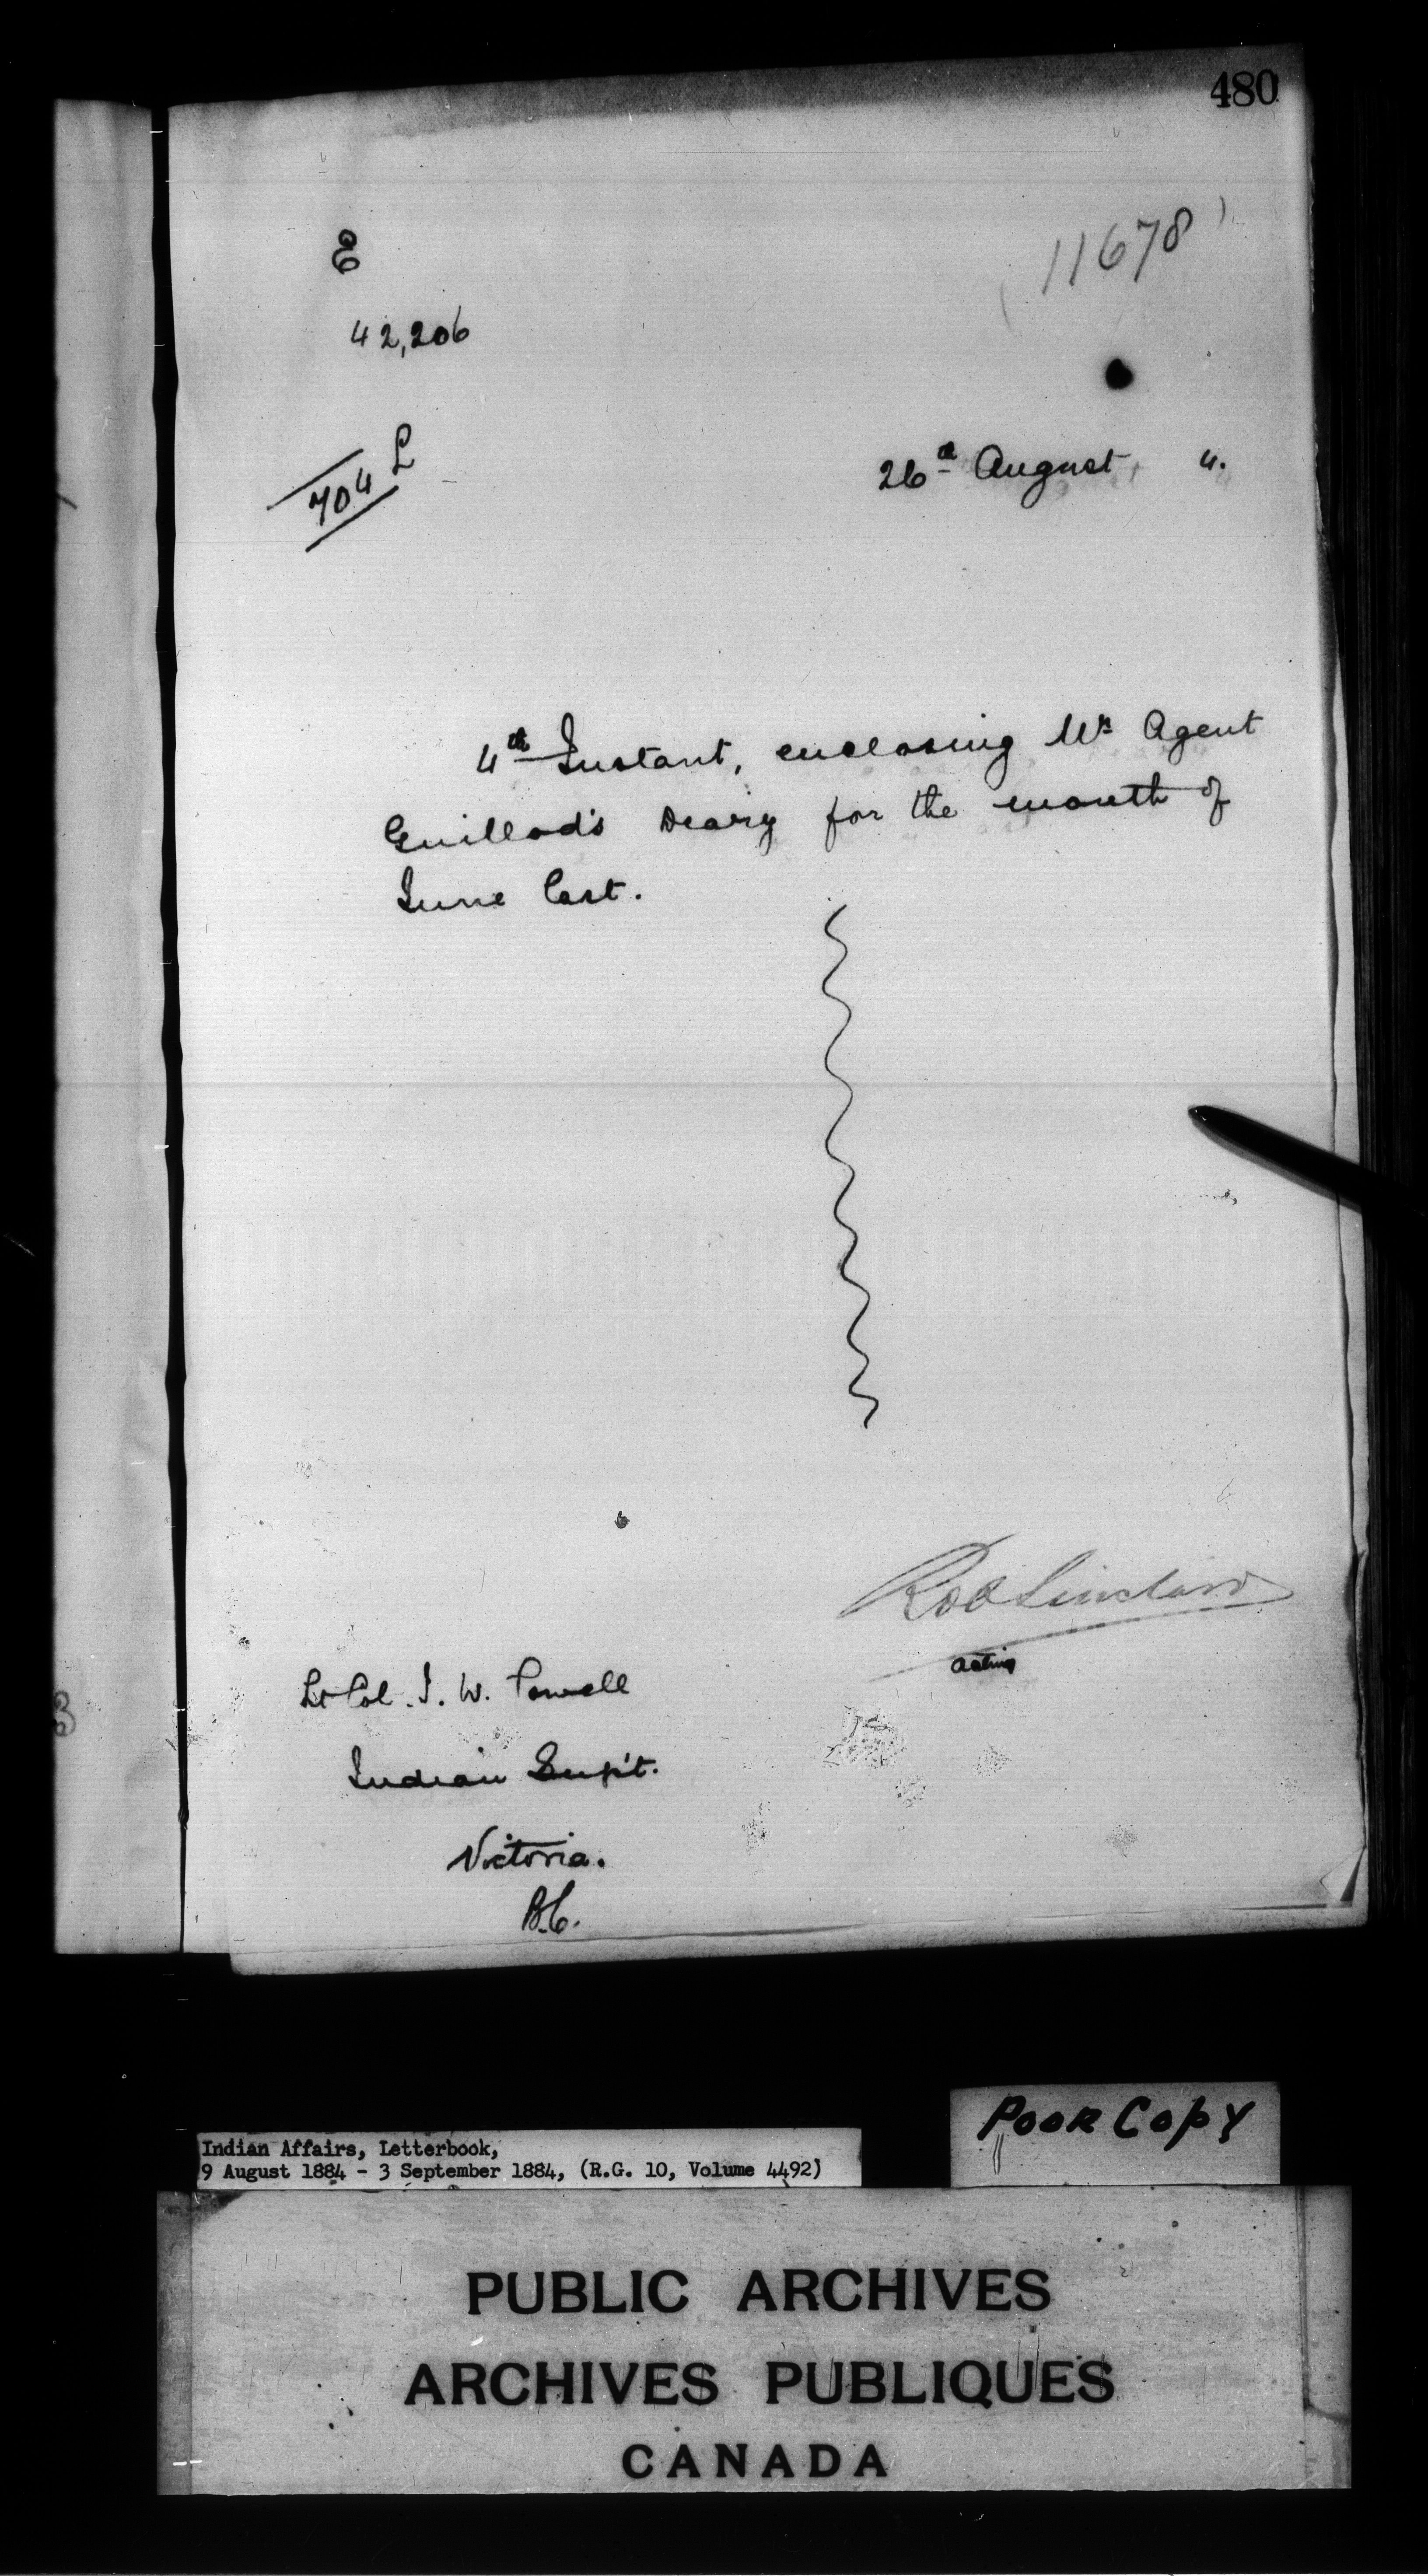 480
11678
E
42,206
704 L
26th August 4.
4th Instant, enclosing Mr Agent
Guillod's Diary for the month of
June last.
Rob Sinclair
acting
Lt Col. I. W. Powell
Indian Sup't.
Victoria.
B.C.
Poor Copy
Indian Affairs, Letterbook,
9 August 1884 - 3 September 1884, (R.G. 10, Volume 4492)
PUBLIC ARCHIVES
ARCHIVES PUBLIQUES
CANADA